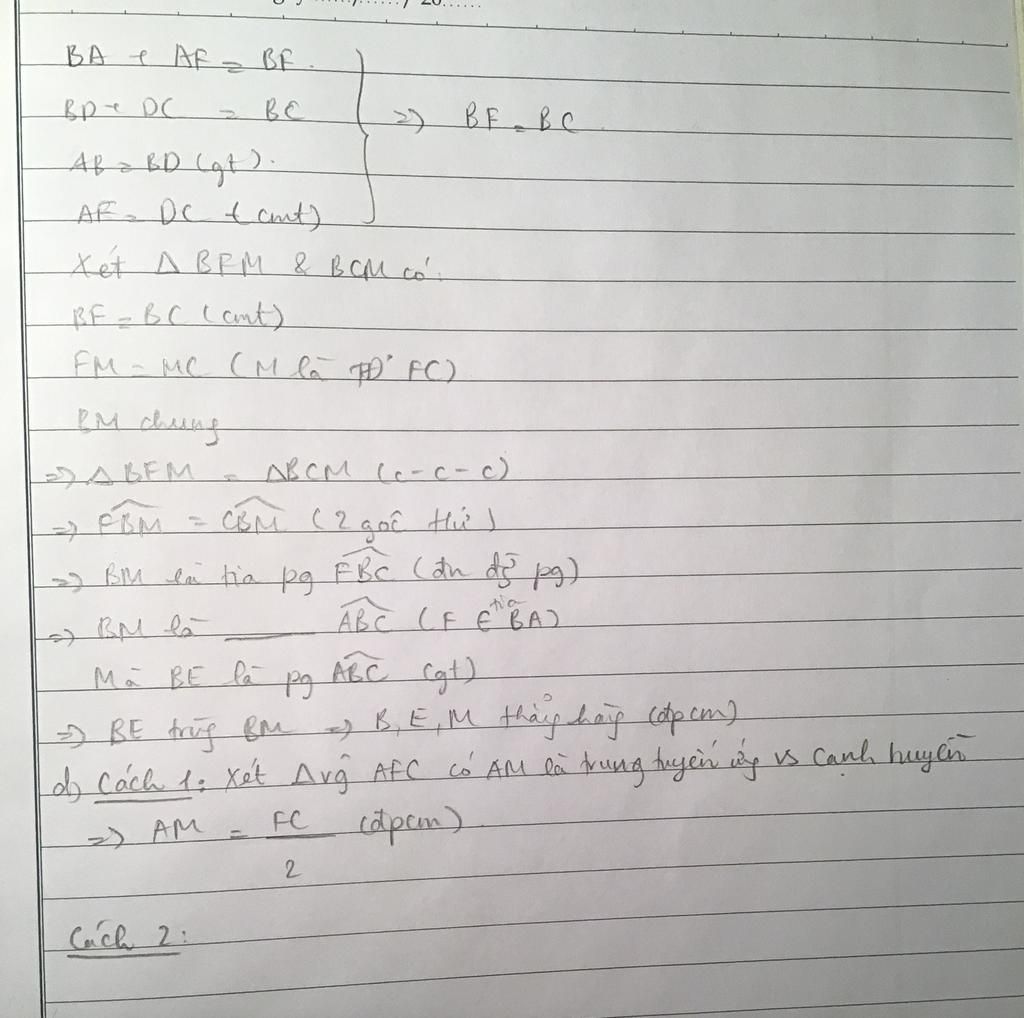 BA + AF = BF.
BD + DC = BC
=> BF = BC
AB = BD (gt).
AF = DC (cmt)
Xét Δ BFM & BCM có:
BF = BC (cmt)
FM = MC (M là TĐ FC)
BM chung
=> Δ BFM = ΔBCM (c-c-c)
=> FBM = CBM (2 góc t/ứ)
=> BM là tia pg FBC (đn pg)
=> BM là ____ ABC (F ∈ tia BA)
Mà BE là pg ABC (gt)
=> BE trùg BM => B, E, M thẳg hàg (đpcm)
d) Cách 1: Xét Δvg AFC có AM là trung tuyến ứg vs cạnh huyền
=> AM = FC/2 (đpcm)
Cách 2: